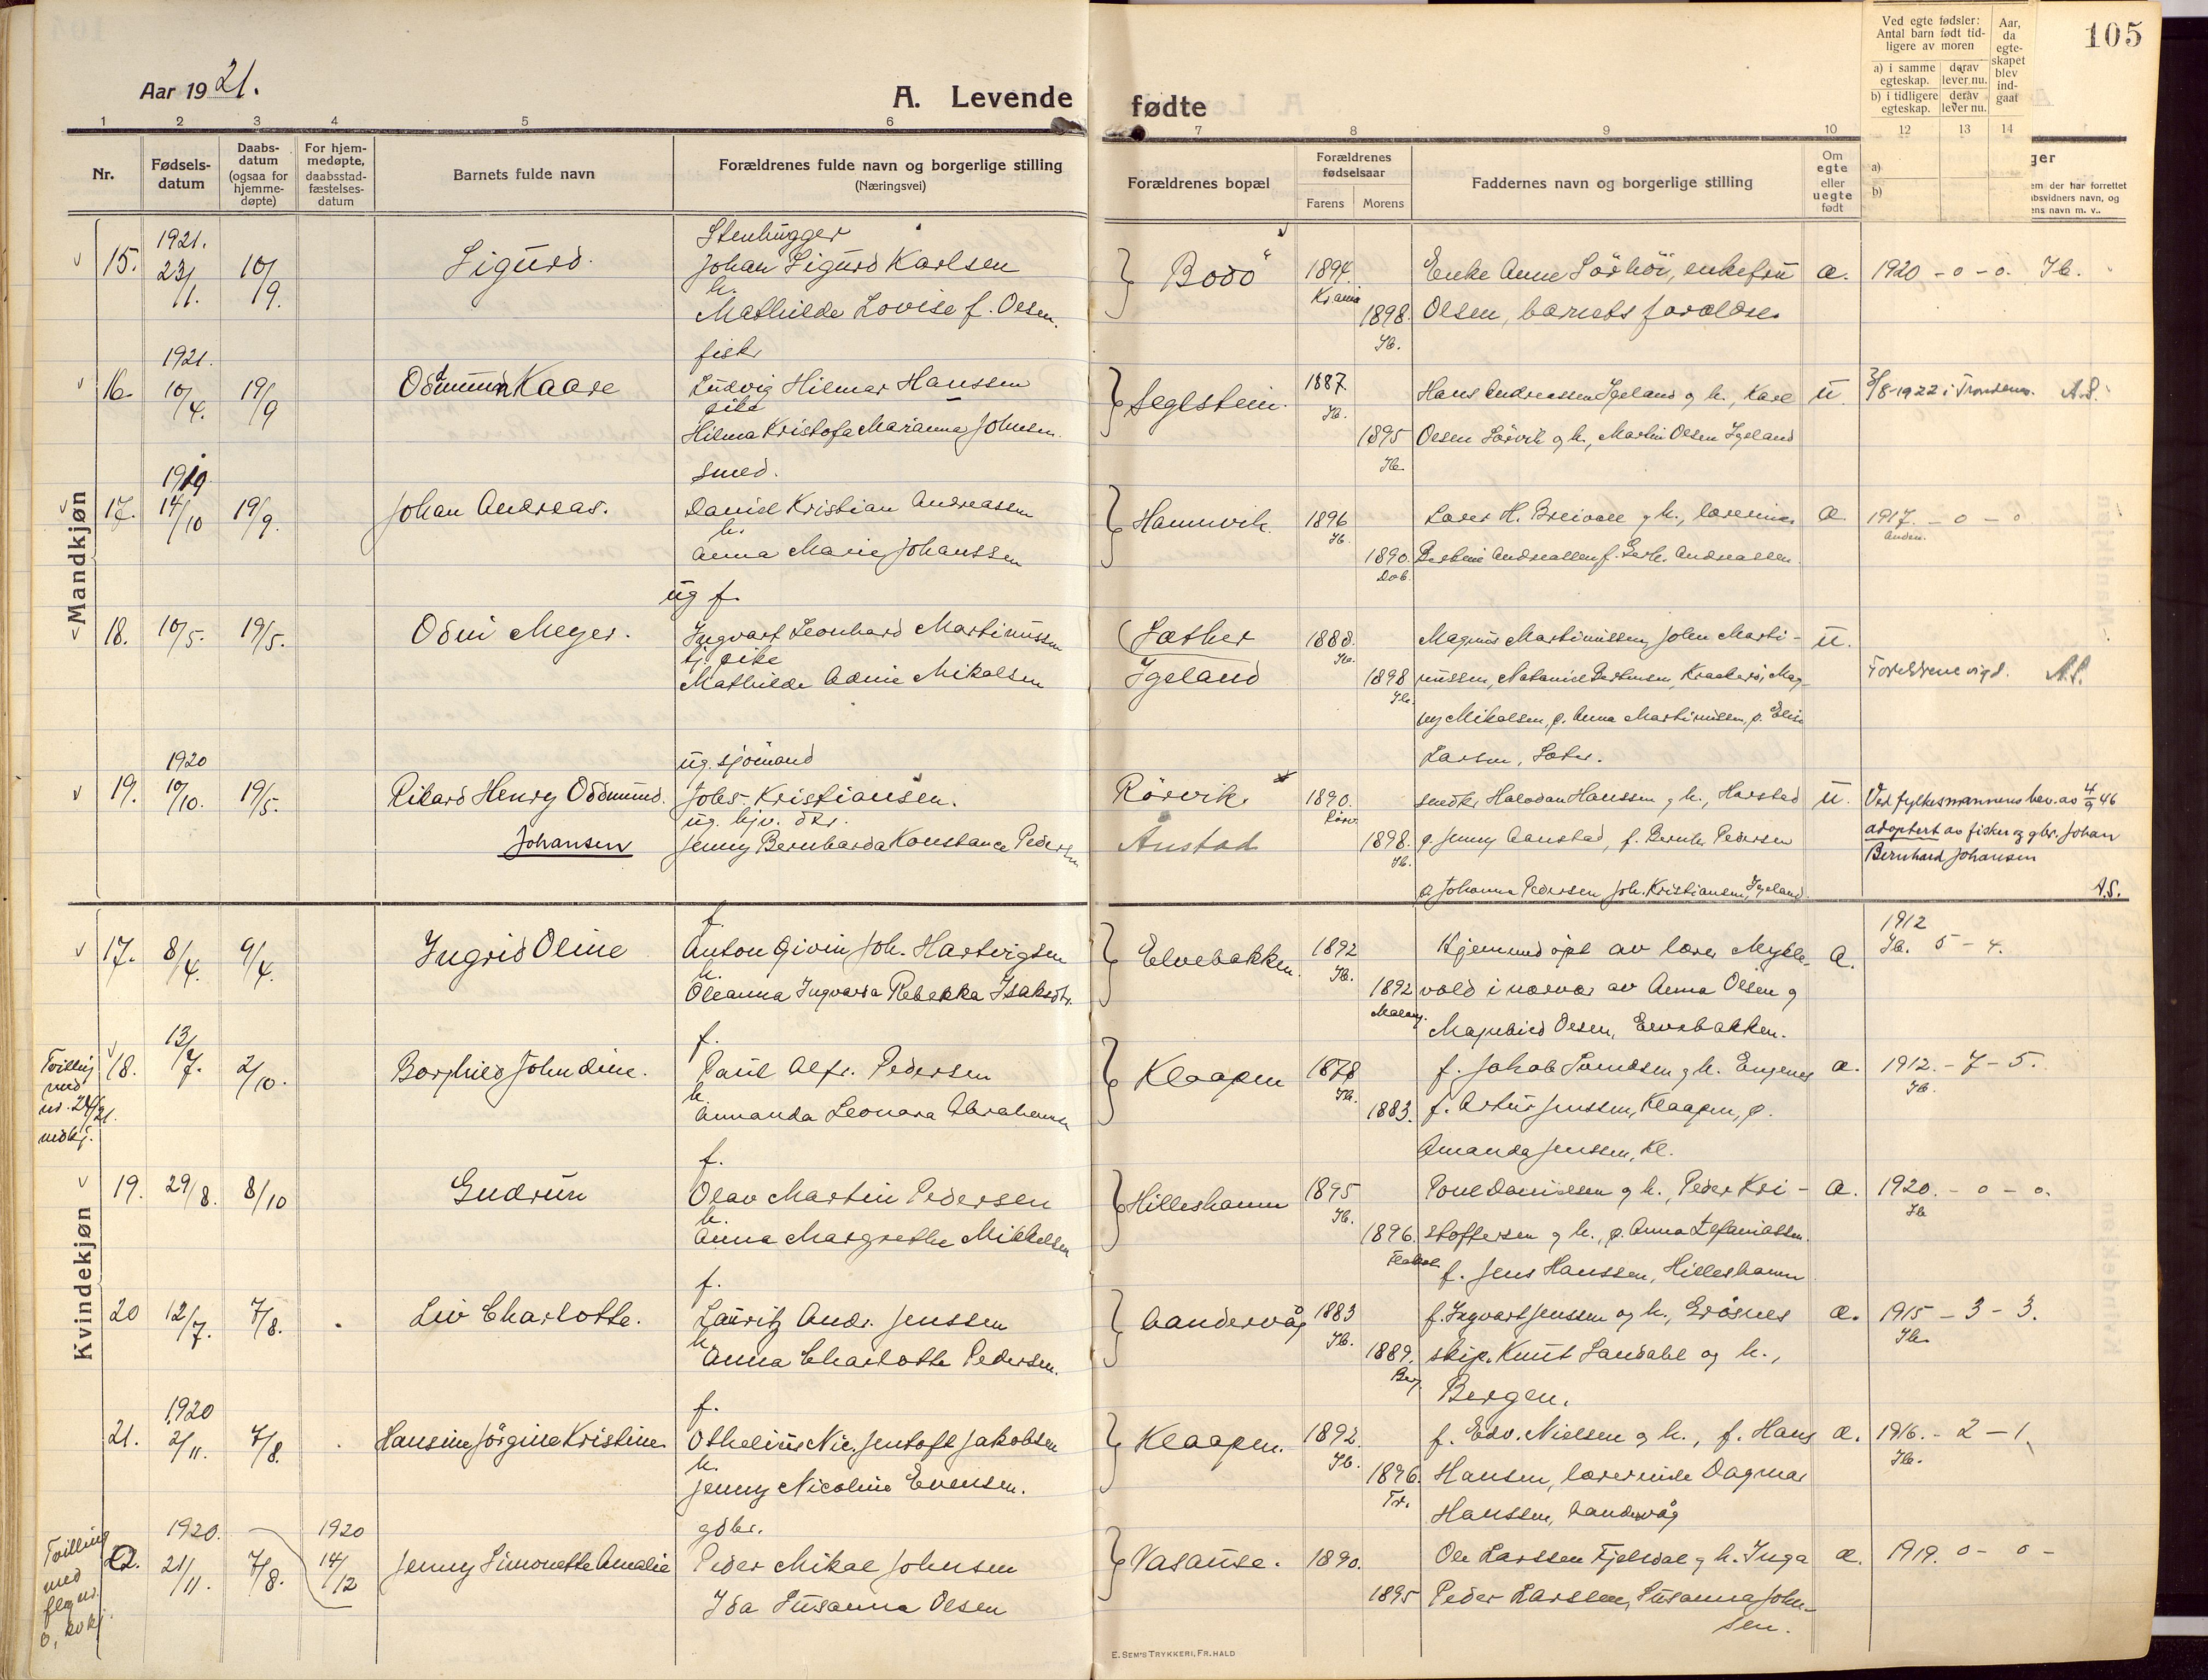 105
Aar 1921.
A. Levende fødte
1 2 3 4 5 6 7 8 9 10 12 13 14
Nr.
Fødsels-
datum
Daabs-
datum
(ogsaa for
hjemme-
døpte)
For hjem-
medøpte,
daabsstad-
fæstelses-
datum
Barnets fulde navn
Forældrenes fulde navn og borgerlige stilling
(Næringsvei)
Forældrenes bopæl
Forældrenes
fødselsaar
Farens Morens
Faddernes navn og borgerlige stilling
Om
egte
eller
uegte
født
Ved egte fødsler:
Antal barn født tid-
ligere av moren
a) i samme
egteskap.
derav
lever nu.
b) i tidligere
egteskap.
derav
lever nu.
Aar,
da
egte-
skapet
blev
ind-
gaat
a)
b)
ger
em der har forrettet
absvidners navn, og
ens navn m. v..
Mandkjøn
15. 1921. 23/1. 10/9. Sigurd.
Stenhugger
Johan Sigurd Karlsen
h.
Mathilde Lovise f. Olsen.
Bodö 1894. Kr.ania 1898. Ib.
Enke Anne Sörhöi, enkefru
Olsen, barnets forældre
æ. 1920 - 0 - 0. Ib.
16. 1921. 10/4. 19/9 Oddmund Kaare
fisker
Ludvig Hilmar Hanssen
pike
Hilma Kristofa Marianna Johnsen.
Seglstein. 1887. Ib. 1895 Ib.
Hans Andreassen Igeland og h., Karl
Olsen Sörvik og h., Martin Olsen Igeland
u. 3/8-1922 i Trondenes. A.S.
17. 1919. 14/10 19/9. Johan Andreas.
smed.
Daniel Kristian Andreassen
h.
Anna Marie Johanssen
Hamnvik. 1896 Ib. 1890.
Lærer H. Breivoll og h., lærerinne
Andreassen f. Gerh. Andreassen.
æ. 1917. - 0 - 0
18. 10/5. 19/5. Odin Meyer.
ug f.
Ingvart Leonhard Martinussen
tj. pike
Mathilde Adine Mikalsen
Sæther
Igeland
1888. Ib. 1898 Ib.
Magnus Martinussen, John Marti-
nussen, Nataniel Bertinsen, Mag-
ny Mikalsen, p. Anna Martinussen, p. Elise
Larsen, Sæter.
u. Foreldrene vigd. A.S.
19. 1920 10/10. 19/5. Rikard Henry Oddmund.
Johansen
ug. sjömand
Johs. Kristiansen.
ug. hjv. dtr.
Jenny Bernharda Konstance Pedersen
Rörvik.
Ånstad
1890. 1898. Ib.
smedkr. Halvdan Hanssen og h., Harstad
p. Jenny Aanstad, f. Bernh. Pedersen
p. Johanna Pedersen Joh. Kristiansen, Igeland.
u. Ved fylkesmannens bev. av 4/9 46
adoptert av fisker og gbr. Johan
Bernhard Johansen
A.S.
Kvindekjøn
17. 8/4. 9/4. Ingrid Oline
f.
Anton Givin Joh. Hartvigsen
h.
Oleanna Ingvarda Rebekka Isaksdtr.
Elvebakken. 1892 Ib. 1892 Malang.
Hjemmedöpt av lærer Mykle-
vold i nærvær av Anna Olsen og
Magnhild Olsen, Elvebakken.
æ. 1912 Ib. 5 - 4.
Tvilling
med
nr. 28/21.
mdkj.
18. 13/7. 2/10. Borghild Johndine.
f.
Paul Alfr. Pedersen
h.
Annanda Leonara Abrahamsen
Klaapen 1878 Ib. 1883.
f. Jakob Samdsen og h. Engenes
f. Artur Jenssen, Klaapen, p.
Amanda Jenssen, Kl.
æ. 1912. - 7 - 5. Ib.
19. 29/8. 8/10 Gudrun
f.
Olav Martin Pedersen
h.
Anna Margrethe Mikkelsen
Hilleshamn 1895 Ib. 1896.
Poul Danielsen og h., Peder Kri-
stoffersen og h., p. Anna Zefaniassen.
f. Jens Hanssen, Hilleshamn
æ. 1920. - 0 - 0. Ib
20 12/7. 7/8. Liv Charlotte.
f.
Lauritz Andr. Jenssen
h.
Anna Charlotte Pedersen.
Aandervåg 1883 Ib. 1889. Berg
f. Ingvart Jenssen og h., Grösnes
skip. Knut Sandahl og h.,
Bergen.
æ. 1915 - 3 - 3. Ib.
21. 1920 2/11. 7/8. Hansine Jörgine Kristine
f.
Othelius Nic. Jentoft Jakobsen
h.
Jenny Nicoline Evensen.
Klaapen. 1892. Ib. 1896. Tr.
f. Edv. Nielsen og h., f. Hans
Hansen, lærerinde Dagmar
Hanssen, Aandervåg
æ. 1916. - 2 - 1 Ib.
Tvilling
med
22. 1920. 21/11. 7/8. 1920 14/12 Jenny Simonette Amalie
gdbr.
Peder Mikal Johnsen
Ida Susanna Olsen
Vasause. 1890. 1895
Ole Larssen Fjelldal og h. Inga
Peder Larssen, Susanna John-
sen.
æ. 1919. 0 - 0 -
E. SEM'S TRYKKERI, FR.HALD